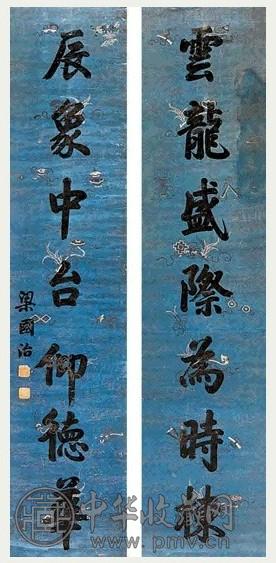 雲龍盛際為時
辰象中台仰徳華
梁國治
中华收藏网
www.pmv.cn